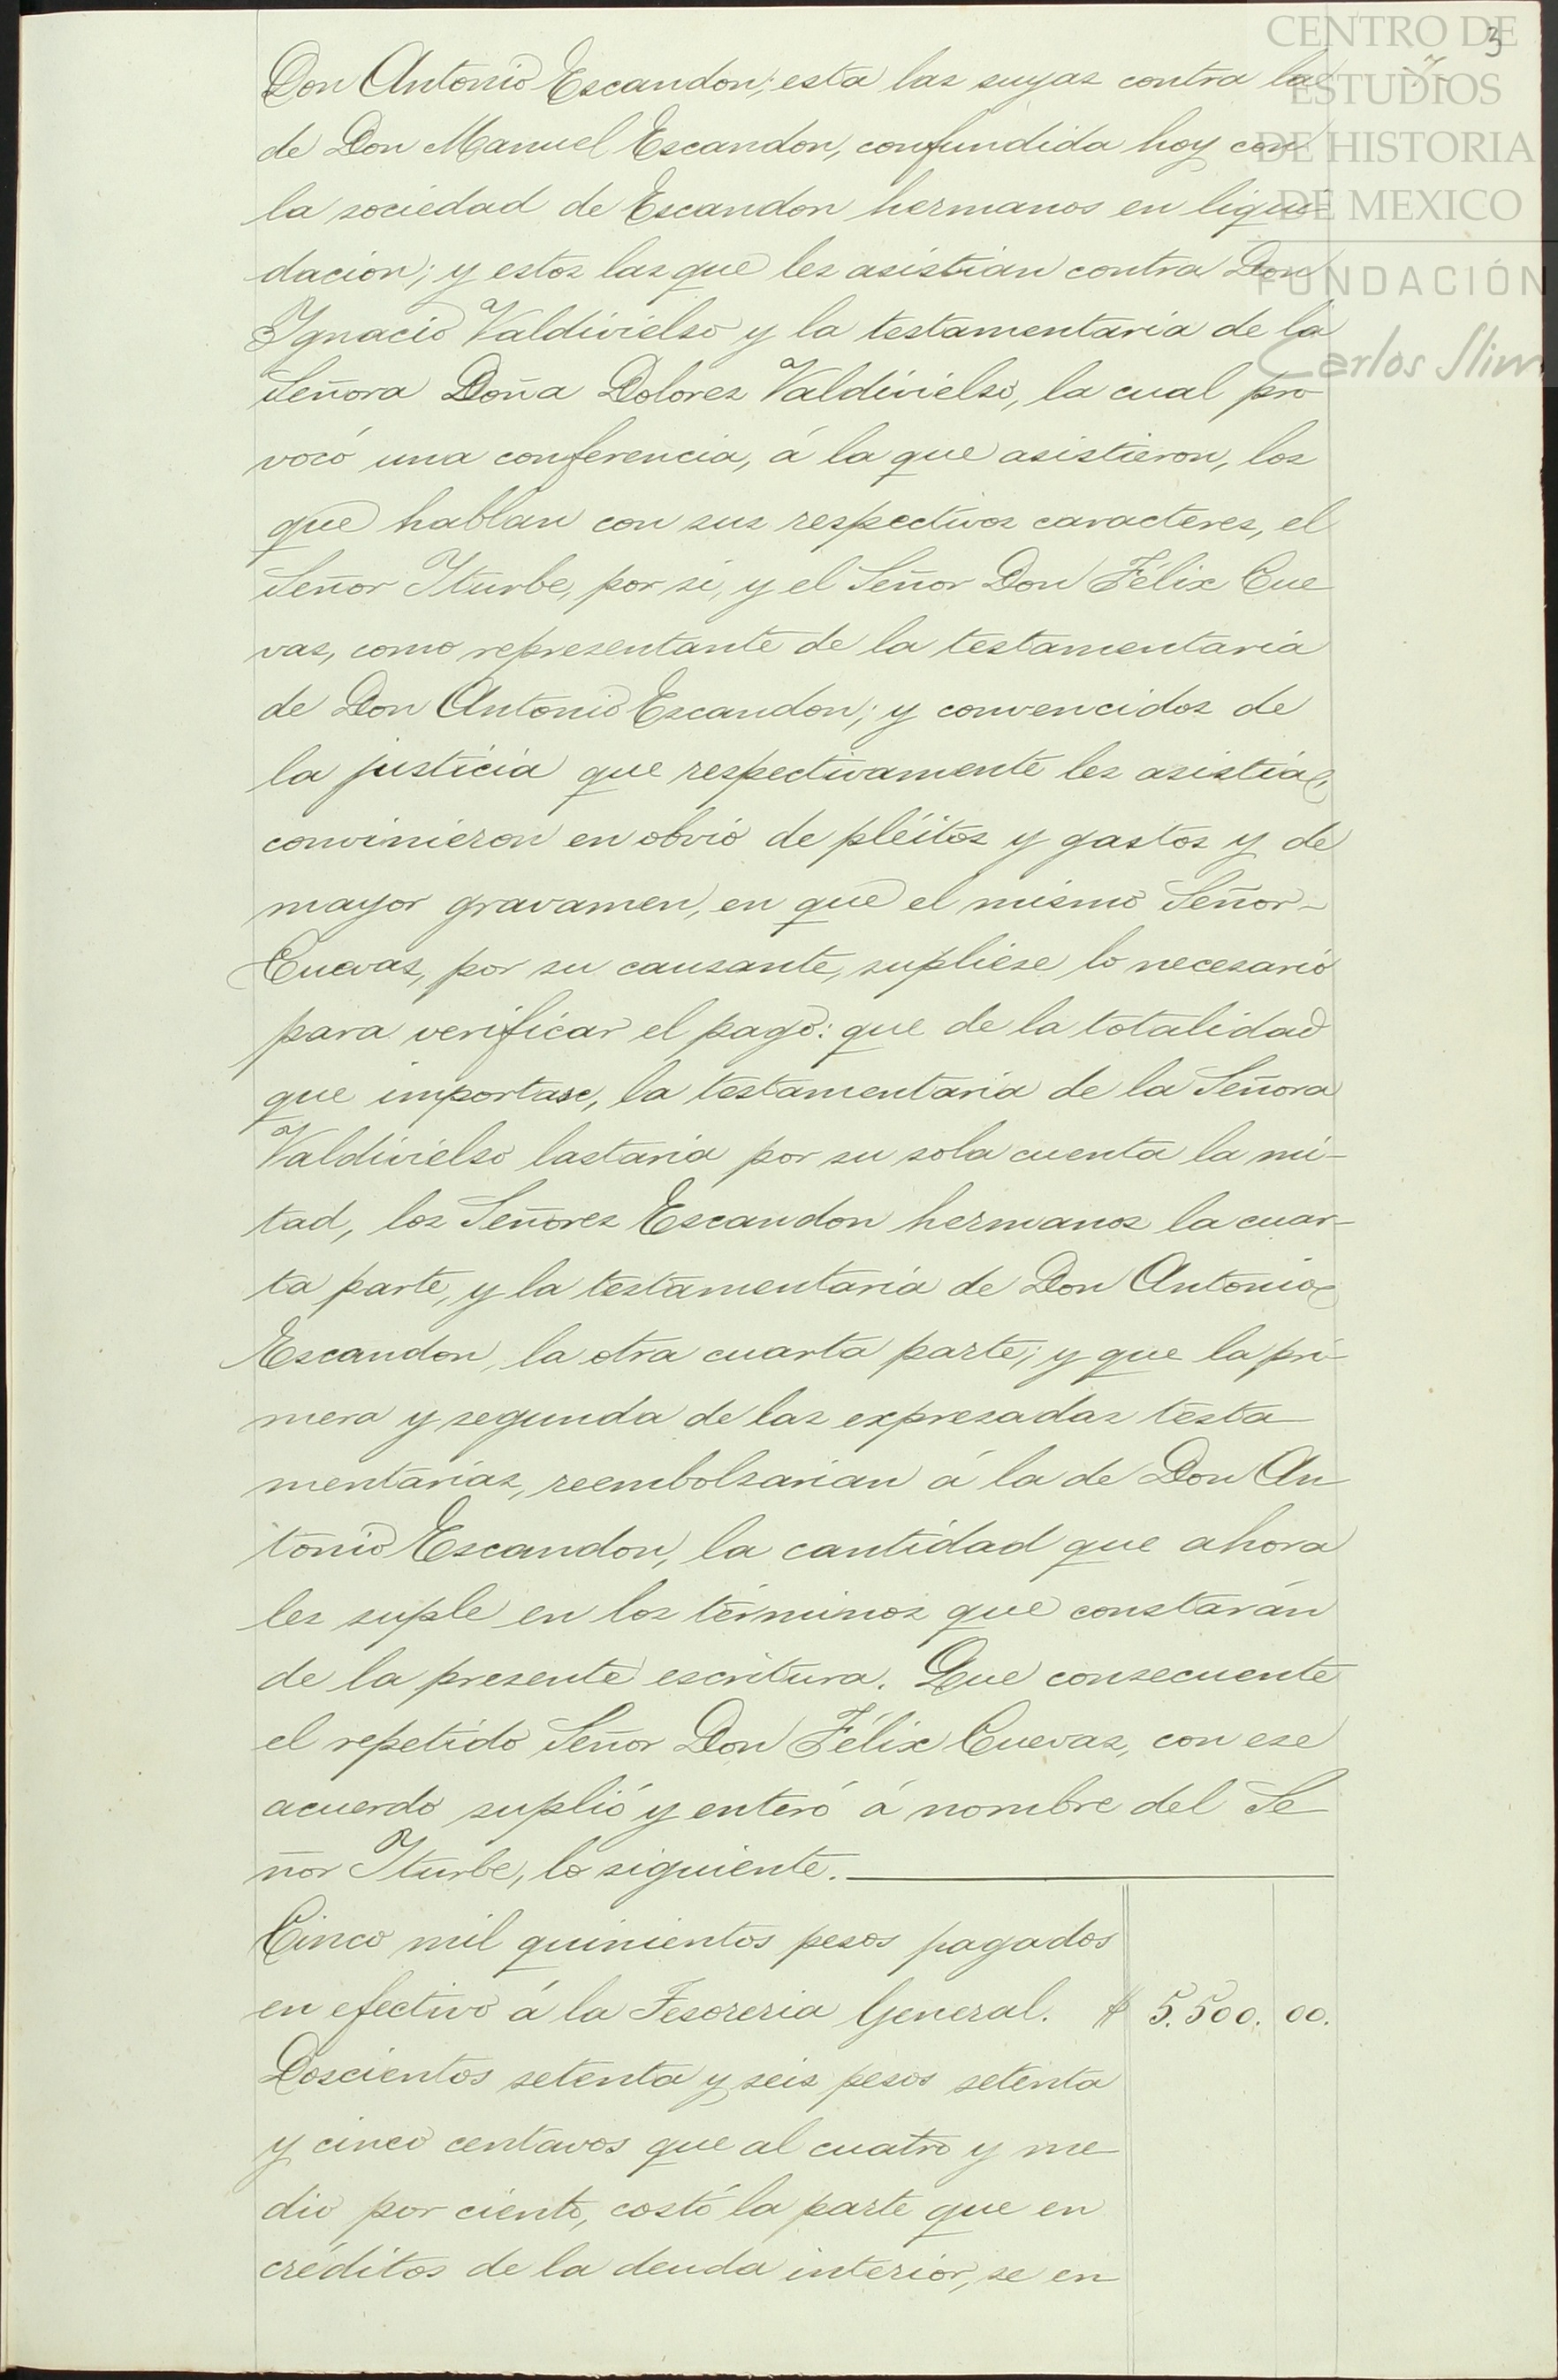 CENTRO DE
ESTUDIOS
DE HISTORIA
DE MEXICO
FUNDACIÓN
Carlos Slim
3
Don Antonio Escandon; esta las suyas contra la
de Don Manuel Escandon, confundida hoy con
la sociedad de Escandon hermanos en liqui-
dacion; y estos las que les asistian contra Don
Ygnacio Valdivielso y la testamentaria de la
Señora Doña Dolores Valdivielso, la cual pro
vocó una conferencia, á la que asistieron, los
que hablan con sus respectivos caracteres, el
Señor Yturbe, por sí, y el Señor Don Félix Cue
vas, como representante de la testamentaria
de Don Antonio Escandon; y convencidos de
la justicia que respectivamente les asistia,
convinieron en obvio de pléitos y gastos y de
mayor gravamen, en que el mismo Señor-
Cuevas, por su causante, supliese lo necesario
para verificar el pago: que de la totalidad
que importase, la testamentaria de la Señora
Valdivielso lastaria por su sola cuenta la mi-
tad, los Señores Escandon hermanos la cuar-
ta parte, y la testamentaria de Don Antonio
Escandon, la otra cuarta parte; y que la pri-
mera y segunda de las expresadas testa
mentarias, reembolsarian á la de Don An
tonio Escandon, la cantidad que ahora
les suple en los términos que constarán
de la presente escritura. Que consecuente
el repetido Señor Don Félix Cuevas, con ese
acuerdo suplió y enteró á nombre del Se
ñor Yturbe, lo siguiente.
Cinco mil quinientos pesos pagados
en efectivo á la Tesoreria General. $ 5.500. 00.
Doscientos setenta y seis pesos setenta
y cinco centavos que al cuatro y me
dio por ciento, costó la parte que en
créditos de la deuda interior, se en